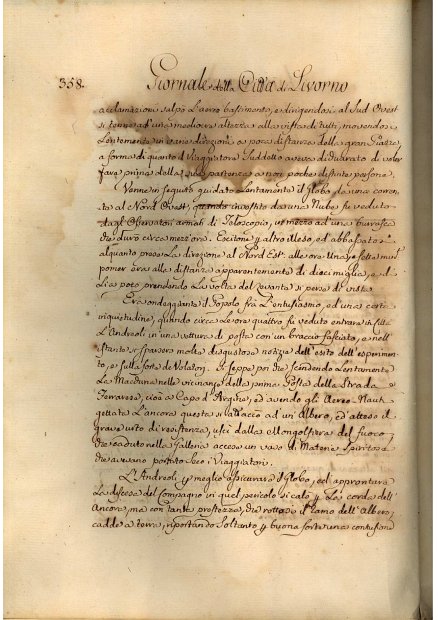 358. Giornale della Città di Livorno
acclamazioni salpò l'aereo bastimento, e dirigendosi al Sud Ovest
si tenne ad una mediocre altezza alla vista di tutti, movendosi
Lentamente in varie direzioni a poca distanza dalla gran Piazza,
a forma di quanto il Viaggiatore Suddetto aveva dichiarato di voler
fare prima della sua partenza a non poche distinte persone.
Venne in seguito guidato Lentamente il globo, da una corren-
te al Nord Ovest, quando investito da una Nube fu veduto
dagl'Osservatori armati di Teloscopio, in mezzo ad una burrasca
che durò circa mezz'ora. Escitone p altro illeso, ed abbassatosi
alquanto prese la direzione al Nord Est. alle ore Una e sette minuti
pomer. era alla distanza apparentemente di dieci miglia, e di
Lì a poco prendendo la volta del Levante si perse di vista.
Era ondeggiante il Popolo frà L'entusiasmo, ed una certa
inquietudine, quando circa Le ore quattro fu veduto entrare in Città
L'Andreoli in una vettura di posta con un braccio fasciato, e nell'
istante si sparsero molte disgustose notizie dell'esito dell'esperimen-
to, e sulla sorte de Volatori. Si seppe poi che scendendo Lentamente
La Macchina nelle vicinanze della prima Posta della Strada
Ferrarese, cioè a Capo d'Argine, ed avendo gli Aereo Nauti
gettata L'ancora questa si allacciò ad un'Albero, ed atteso il
grave urto di resistenza, uscì dalla Mongolfiera del fuoco,
che caduto nella Galleria accese un vaso di Materie Spiritose
che avevano portato Seco i Viaggiatori.
L'Andreoli p meglio assicurare il globo, ed approntare
La discesa del compagno in quel pericolo si calò p La corda dell'
Ancora, ma con tanta prestezza, che rottosi il ramo dell'Albero,
cadde a terra, riportando Soltanto p buona sorte una contusione